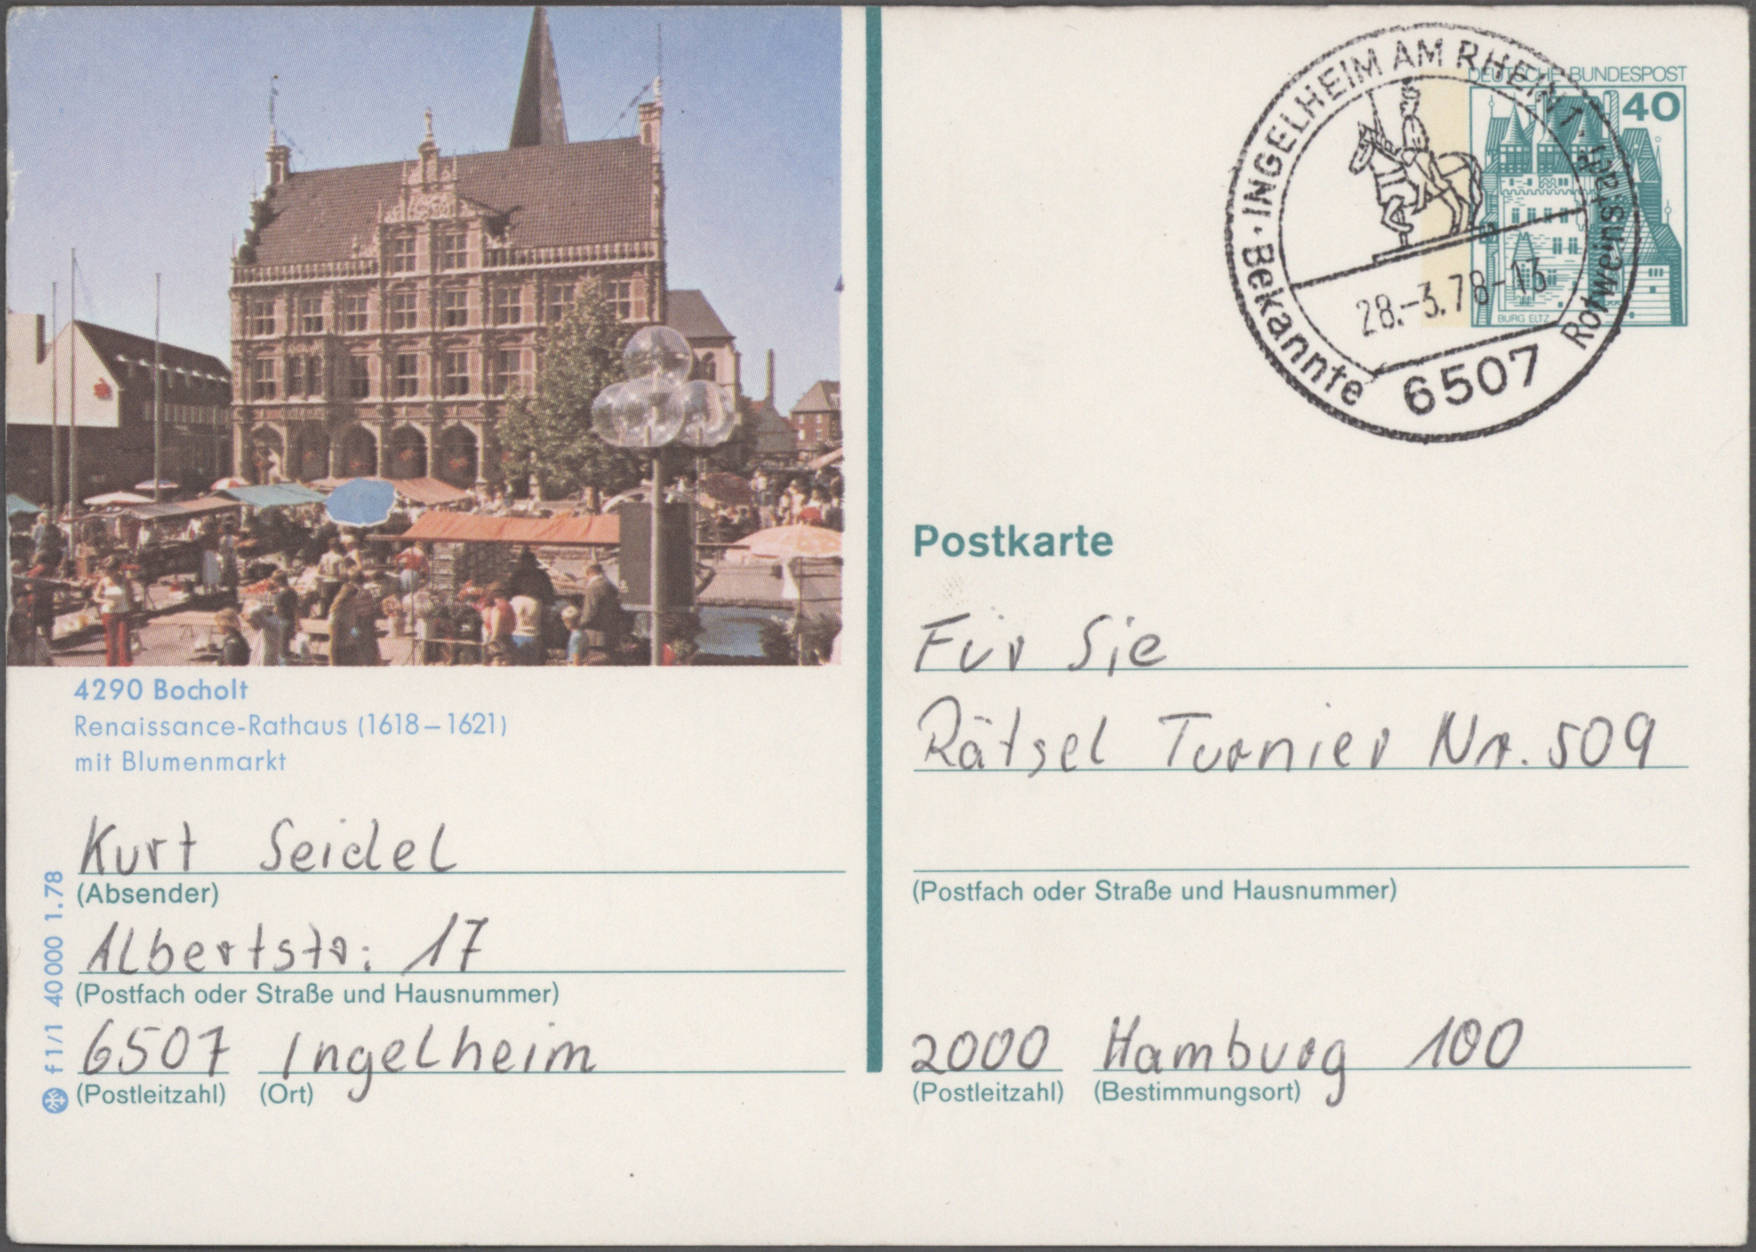 4290 Bocholt
Renaissance-Rathaus (1618–1621)
mit Blumenmarkt
Kurt Seidel
(Absender)
Albertstr: 17
(Postfach oder Straße und Hausnummer)
6507 Ingelheim
(Postleitzahl) (Ort)
f 1/1 40 000 1.78
· INGELHEIM AM RHEIN 1 ·
Bekannte Rotweinstadt
28.-3.78-13
6507
DEUTSCHE BUNDESPOST
40
BURG ELTZ
Postkarte
Für Sie
Rätsel Turnier Nr. 509
(Postfach oder Straße und Hausnummer)
2000 Hamburg 100
(Postleitzahl) (Bestimmungsort)